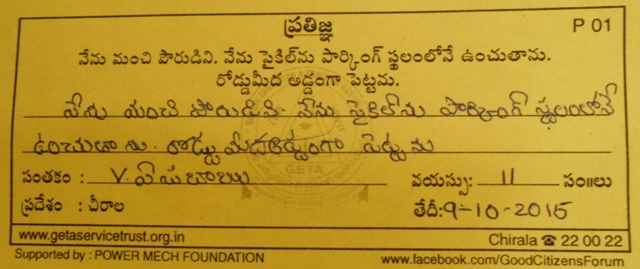 ప్రతిజ్ఞ P 01
నేను మంచి పౌరుడిని. నేను సైకిల్‌ను పార్కింగ్ స్థలంలోనే ఉంచుతాను.
రోడ్డుమీద అడ్డంగా పెట్టను.
నేను మంచి పౌరుడిని. నేను సైకిల్‌ను పార్కింగ్ స్థలంలోనే
ఉంచుతాను. రోడ్డు మీద అడ్డంగా పెట్టను
సంతకం : V. వయస్సు: 11 సం॥లు
ప్రదేశం : చీరాల తేదీ: 9-10-2015
www.getaservicetrust.org.in Chirala ☎ 22 00 22
Supported by : POWER MECH FOUNDATION www.facebook.com/GoodCitizensForum
GETA